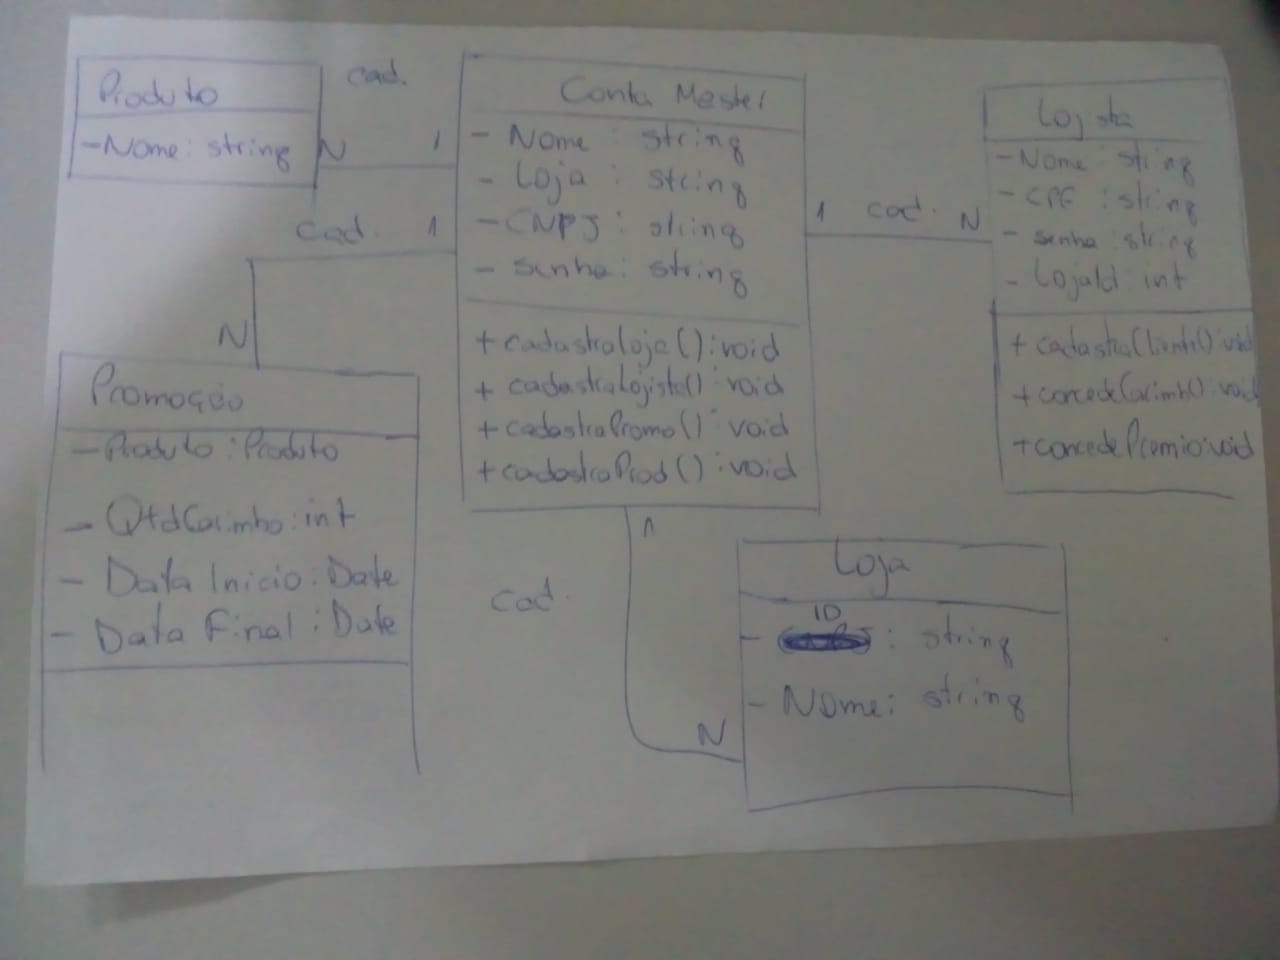 Produto
- Nome: string
cad.
N
1
Conta Master
- Nome : string
- Loja : string
- CNPJ : string
- senha : string
+ cadastraLoja() : void
+ cadastraLojista() : void
+ cadastraPromo() : void
+ cadastraProd() : void
1 cad. N
Lojista
- Nome : string
- CPF : string
- senha : string
- LojaId : int
+ cadastraCliente() : void
+ concedeCarimbo() : void
+ concedePremio : void
cad. 1
N
Promoção
- Produto : Produto
- QtdCarimbo : int
- Data Inicio : Date
- Data Final : Date
1
cad.
N
Loja
- ID : string
- Nome : string